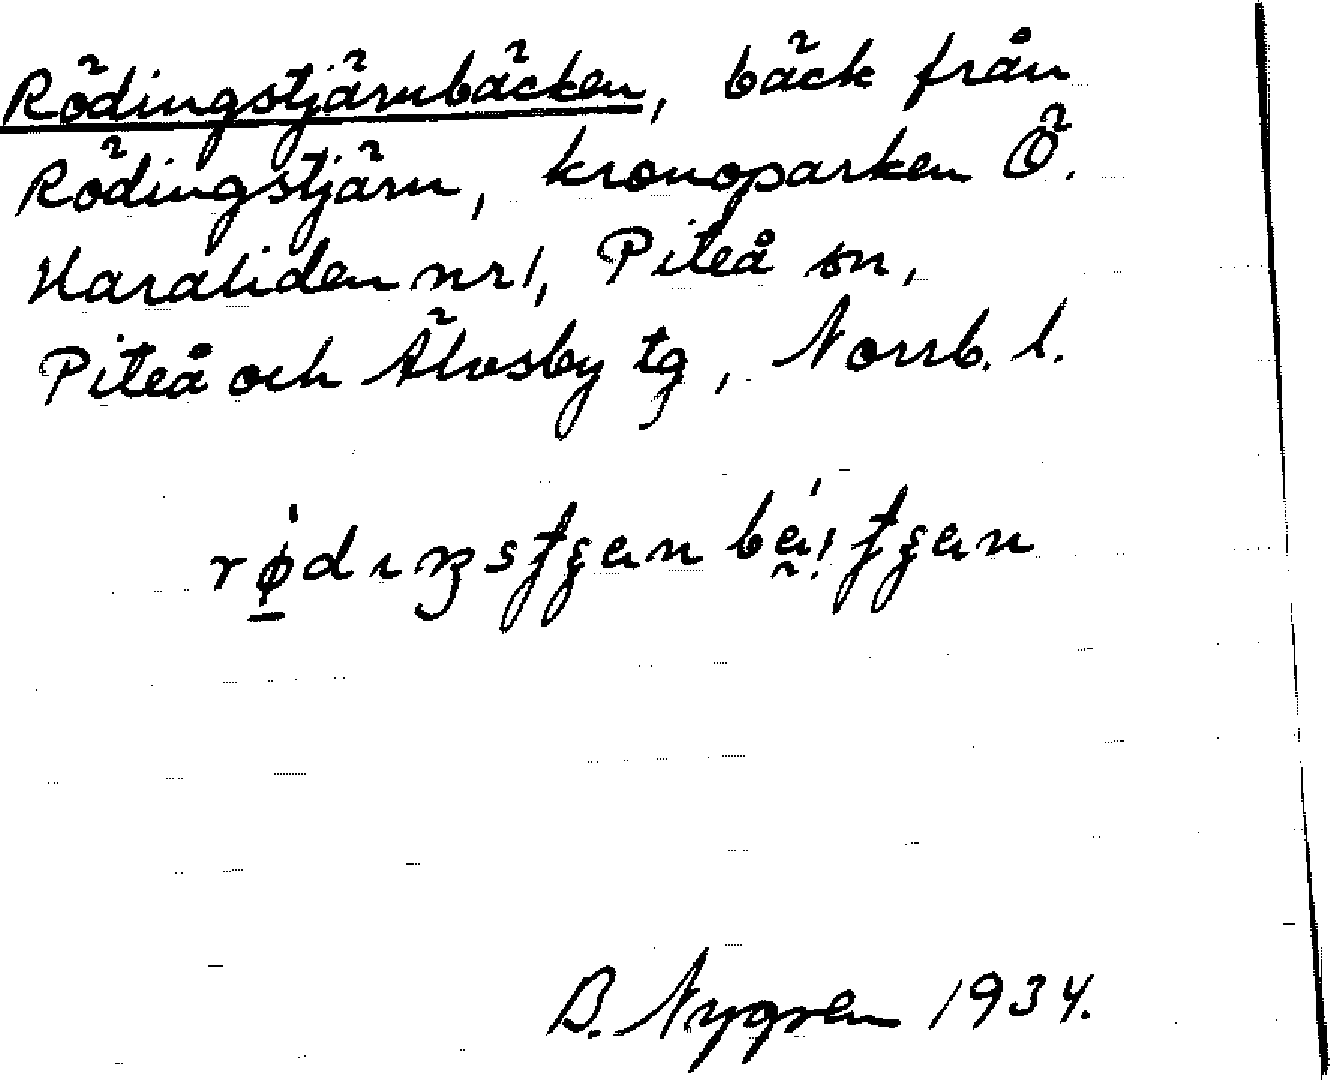 Rödingstjärnbäcken, bäck från
Rödingstjärn, kronoparken Ö.
Haraliden nr 1, Piteå sn,
Piteå och Älvsby tg, Norrb. l.
B. Nygren 1934.